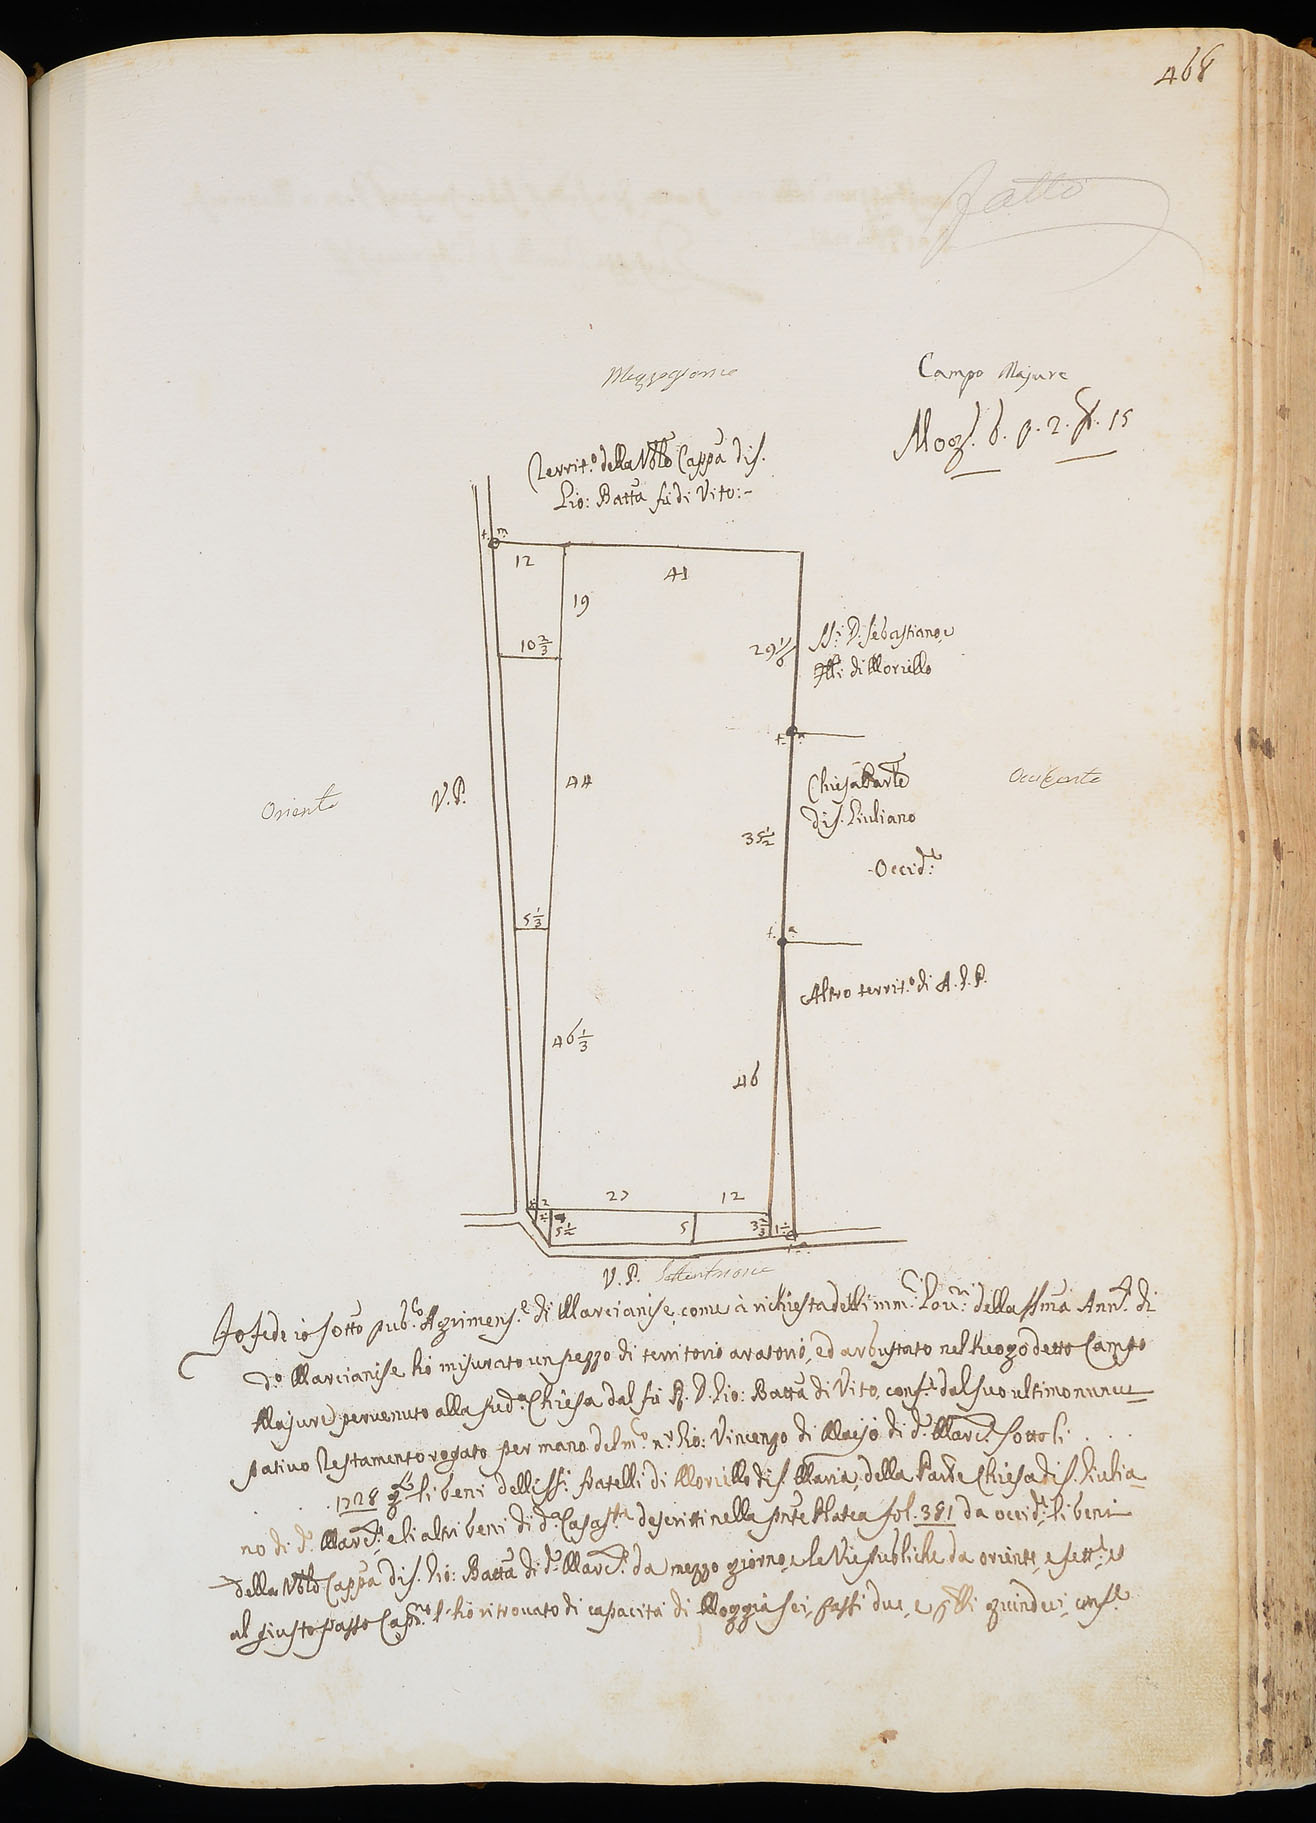 468
Fatto
Mezzogiorno
Campo Majure
Mog. 6. p. 2. p. 15
Territ.o della Vble Cappa di S.
Gio: Batta fù di Vito:-
t. m.
12
41
19
10 2/3
29 1/6
SS.i D. Sebastiano, e
Flli di Moriello
t. a.
Oriente
V. P.
44
Chiesa Parle
di S. Giuliano
Occidente
35 1/2
Occid.e
5 1/3
t. a.
Altro territ.o di A. G. P.
46 1/3
46
2
27
12
5 1/2
5
3 2/3
V. P. Settentrione
Io fede io sotto pub.co Agrimens.e di Marcianise, come à richiesta delli mm.ci Gov.ri della SSma Ann.ta di
d.o Marcianise hò misurato un pezzo di territorio aratorio, ed arbustato nel luogo detto Campo
Majure pervenuto alla sud.a Chiesa dal fù R. D. Gio: Batta di Vito, conf.e dal suo ultimo nuncu-
pativo testamento rogato per mano del m.o n.r Gio: Vincenzo di Maijo di d.o Marc.e sotto li . . .
. . 1728 li beni delli SS.i fratelli di Moriello di S. Maria, della Parle Chiesa di S. Giulia-
no di d.o Marc.e, e li altri beni di d.a Casa S.ta descritti nella pnte Platea fol. 381 da occid.e, li beni
della Vble Cappa di S. Gio: Batta di d.o Marc.e da mezzo giorno, e le Vie publiche da oriente, e sett.e, e
al giusto passo Cap.no l'hò ritrovato di capacità di Moggia sei, passi due, e p.lli quindeci, conf.e